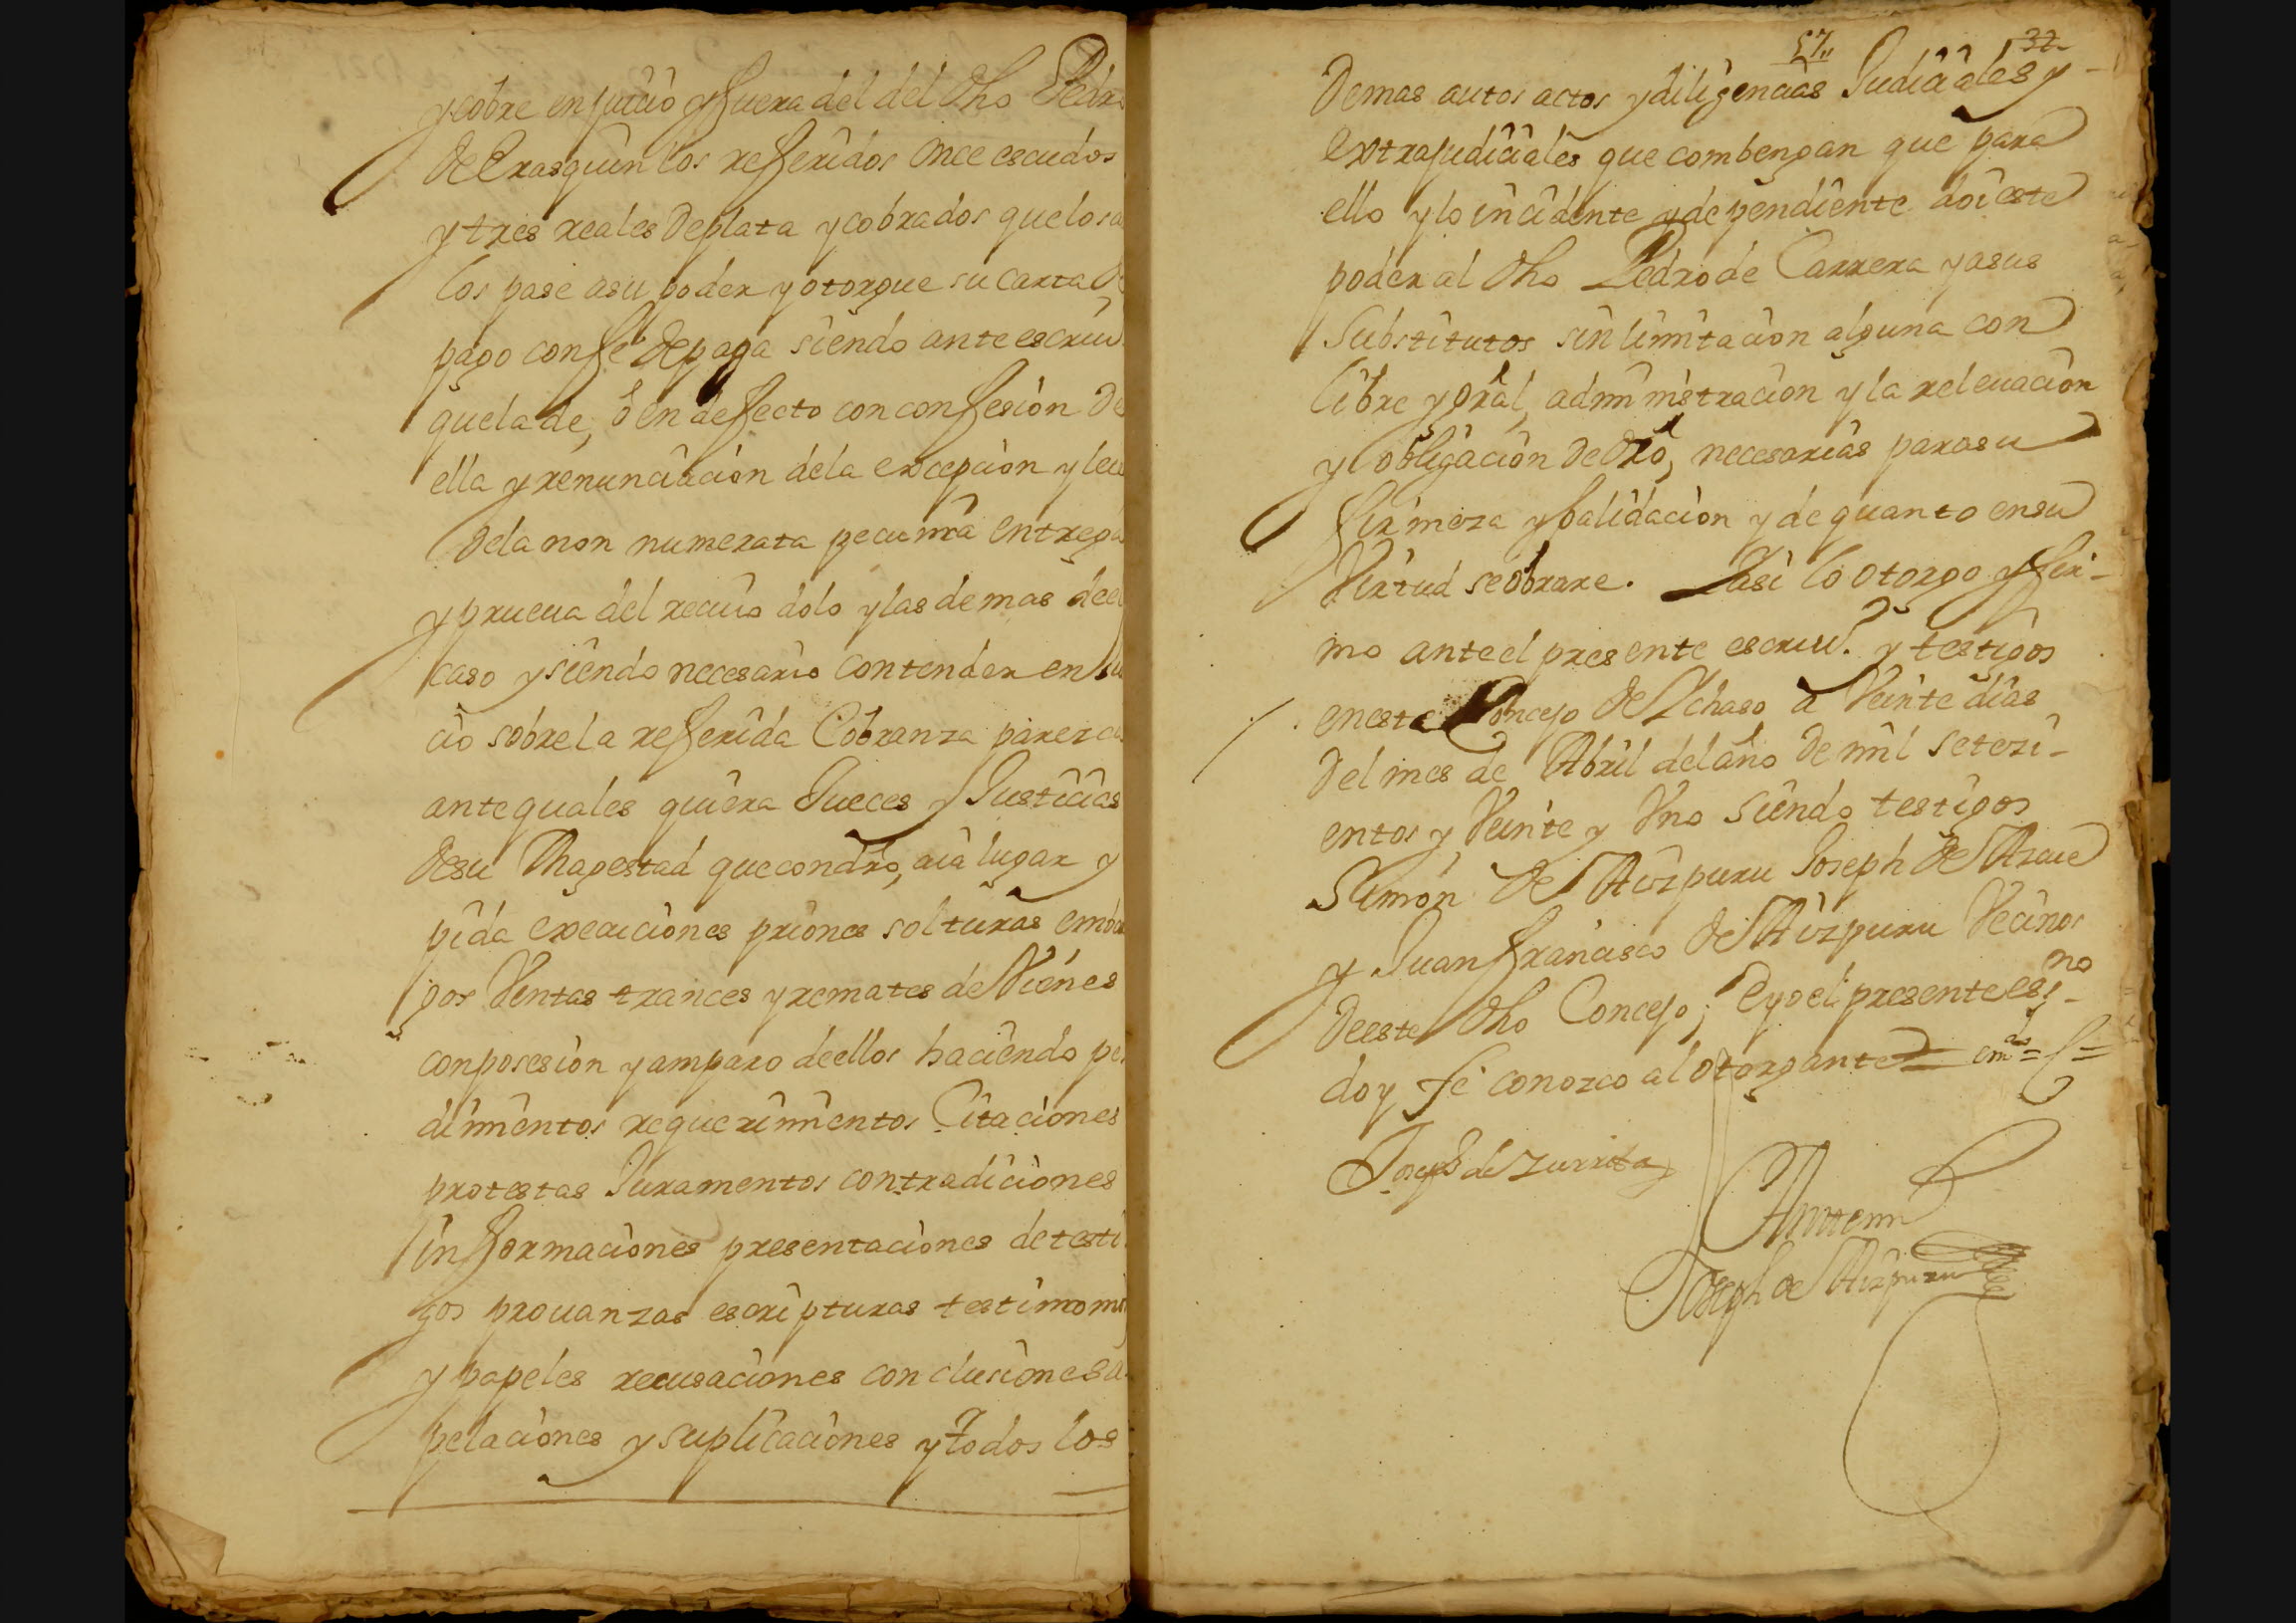 y cobre en juicio y fuera del del dho Pedro
de Erasquin los referidos once escudos
y tres reales de plata y cobrados que los a
los pase a su poder y otorgue su carta de
pago con fe de paga siendo ante escriu
que la de, ô en defecto con confesion de
ella y renunciacion de la excepcion y leie
de la non numerata pecunia entrega
y prueua del reciuo dolo y las demas de el
caso y siendo necesario contender en Jui
cio sobre la referida Cobranza parezca
ante quales quiera Jueces y Justicias
de su Magestad que con dro, aia lugar y
pida execuciones priones solturas embar
gos Ventas trances y remates de Vienes
con posesion y amparo de ellos haciendo pe
dimientos requerimientos Citaciones
protestas Juramentos contradiciones
informaciones presentaciones de testi
gos prouanzas escripturas testimoni
y papeles recusaciones conclusiones a
pelaciones y suplicaciones y todos los
57,, 32
Demas autos actos y diligencias Judiciales y
extrajudiciales que combengan que para
ello y lo incidente y dependiente doi este
poder al dho Pedro de Carrera y a sus
Substitutos sin limitacion alguna con
libre y gral, administracion y la releuacion
y obligacion de dro, necesarias para su
firmeza y balidacion y de quanto en su
Virtud se obrare. I asi lo otorgo y fir-
mo ante el presente escriu.º y testigos
en este Concejo de Ichaso a Veinte dias
del mes de Abril del año de mil setezi-
entos y Veinte y Vno siendo testigos
Simon de Aizpuru Joseph de Azcue
y Juan francisco de Aizpuru Vecinos
de este dho Concejo; E yo el presente es.no
doy fe conozco al otorgante = em.do = C =
Joseph de Zurrita
Ante mi
Joseph de Aizpuru